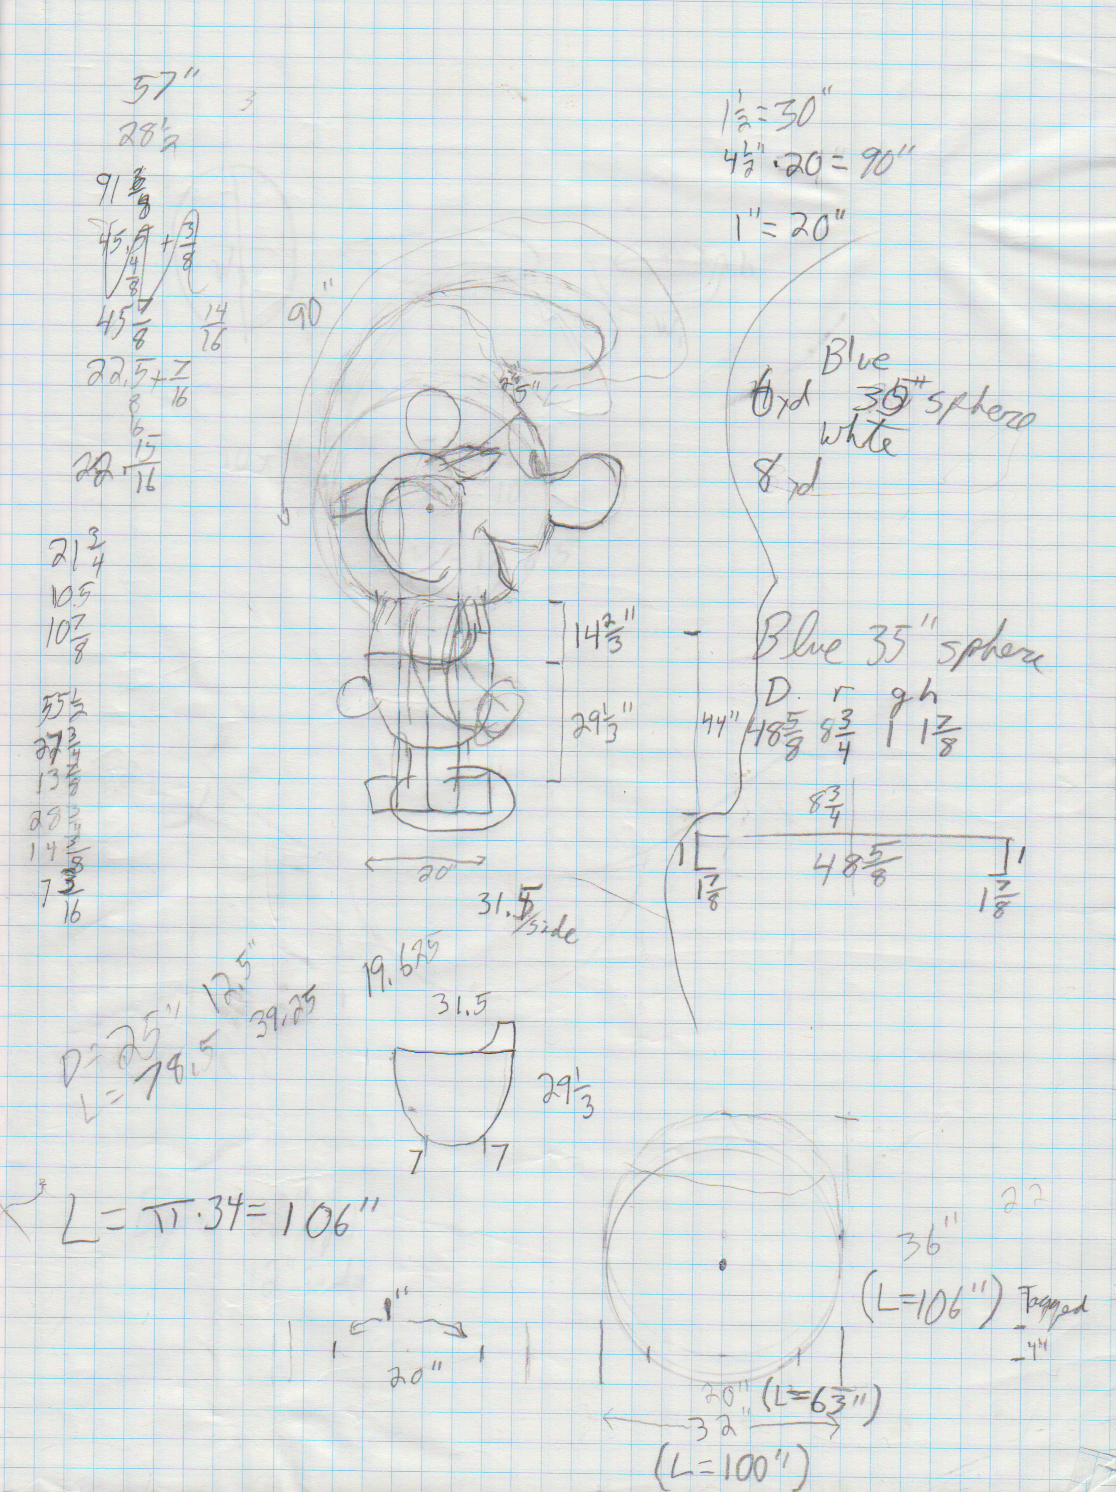 57"
28 1/2
91 3/8
45.5 + 3/8
4/8
45 7/8
14/16
22.5 + 7/16
8
6
22 15/16
21 3/4
10.5
10 7/8
55 1/2
27 3/4
13 7/8
28
14 3/8
7 3/16
1 1/2 = 30"
4 1/2" · 20 = 90"
1" = 20"
90"
Blue
yd 35" sphere
white
8 yd
14 2/3"
29 1/3"
44"
Blue 35" sphere
D r g h
48 5/8 8 3/4 1 1 7/8
8 3/4
1 48 5/8 1
1 7/8 1 7/8
20
31.5/side
19.625
31.5
29 1/3
7 7
12.5"
39.25
D = 25"
L = 78.5
L = π · 34 = 106"
1"
20"
22
36"
(L=106") Tagged
44
20" (L=63")
32"
(L=100")